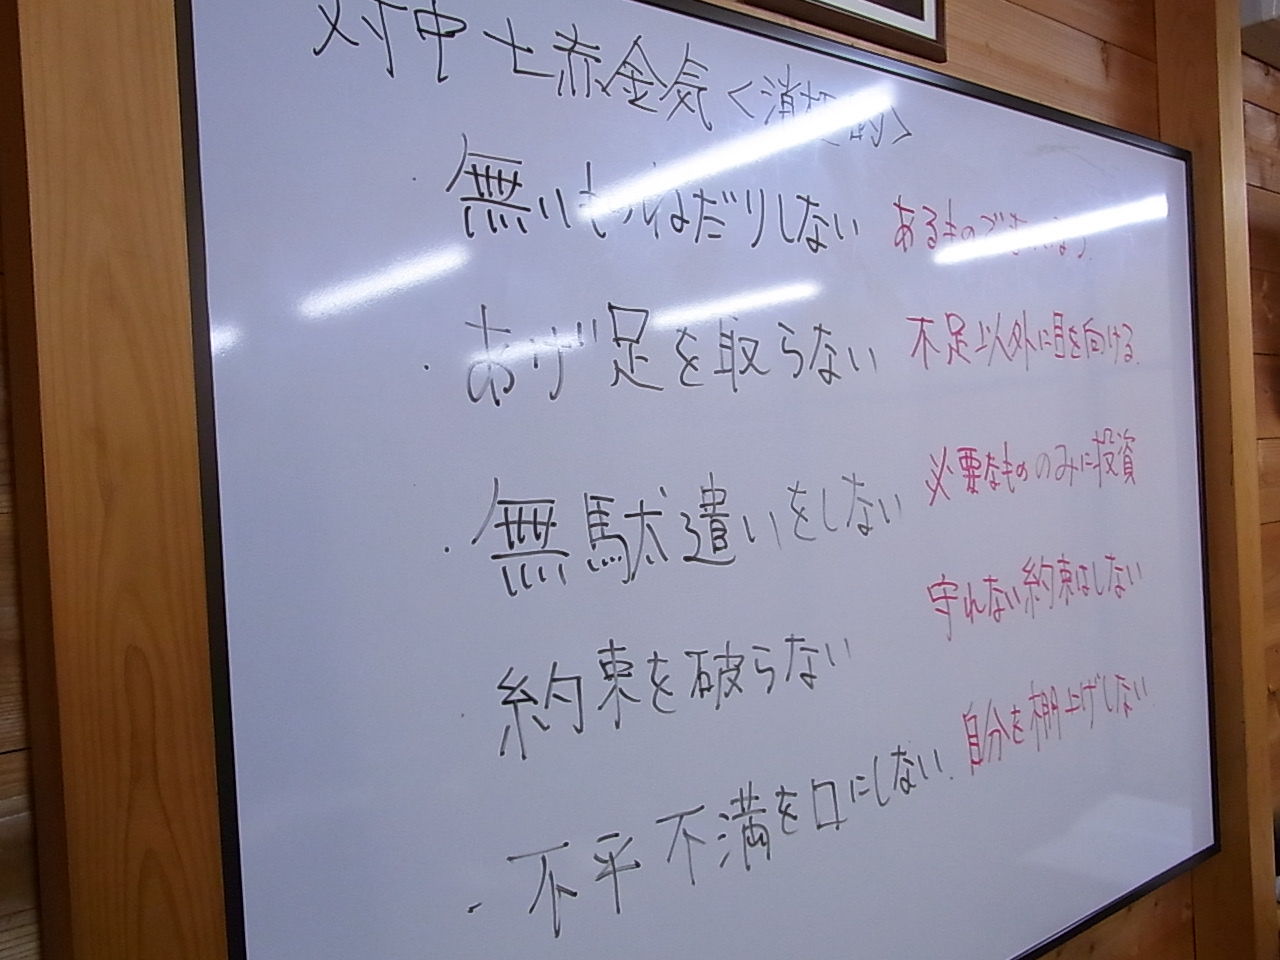 対中七赤金気<消極的>
・無いものねだりしない あるもので
・あげ足を取らない 不足以外に目を向ける.
・無駄遣いをしない 必要なもののみに投資
・約束を破らない 守れない約束はしない
・不平不満を口にしない. 自分を棚上げしない